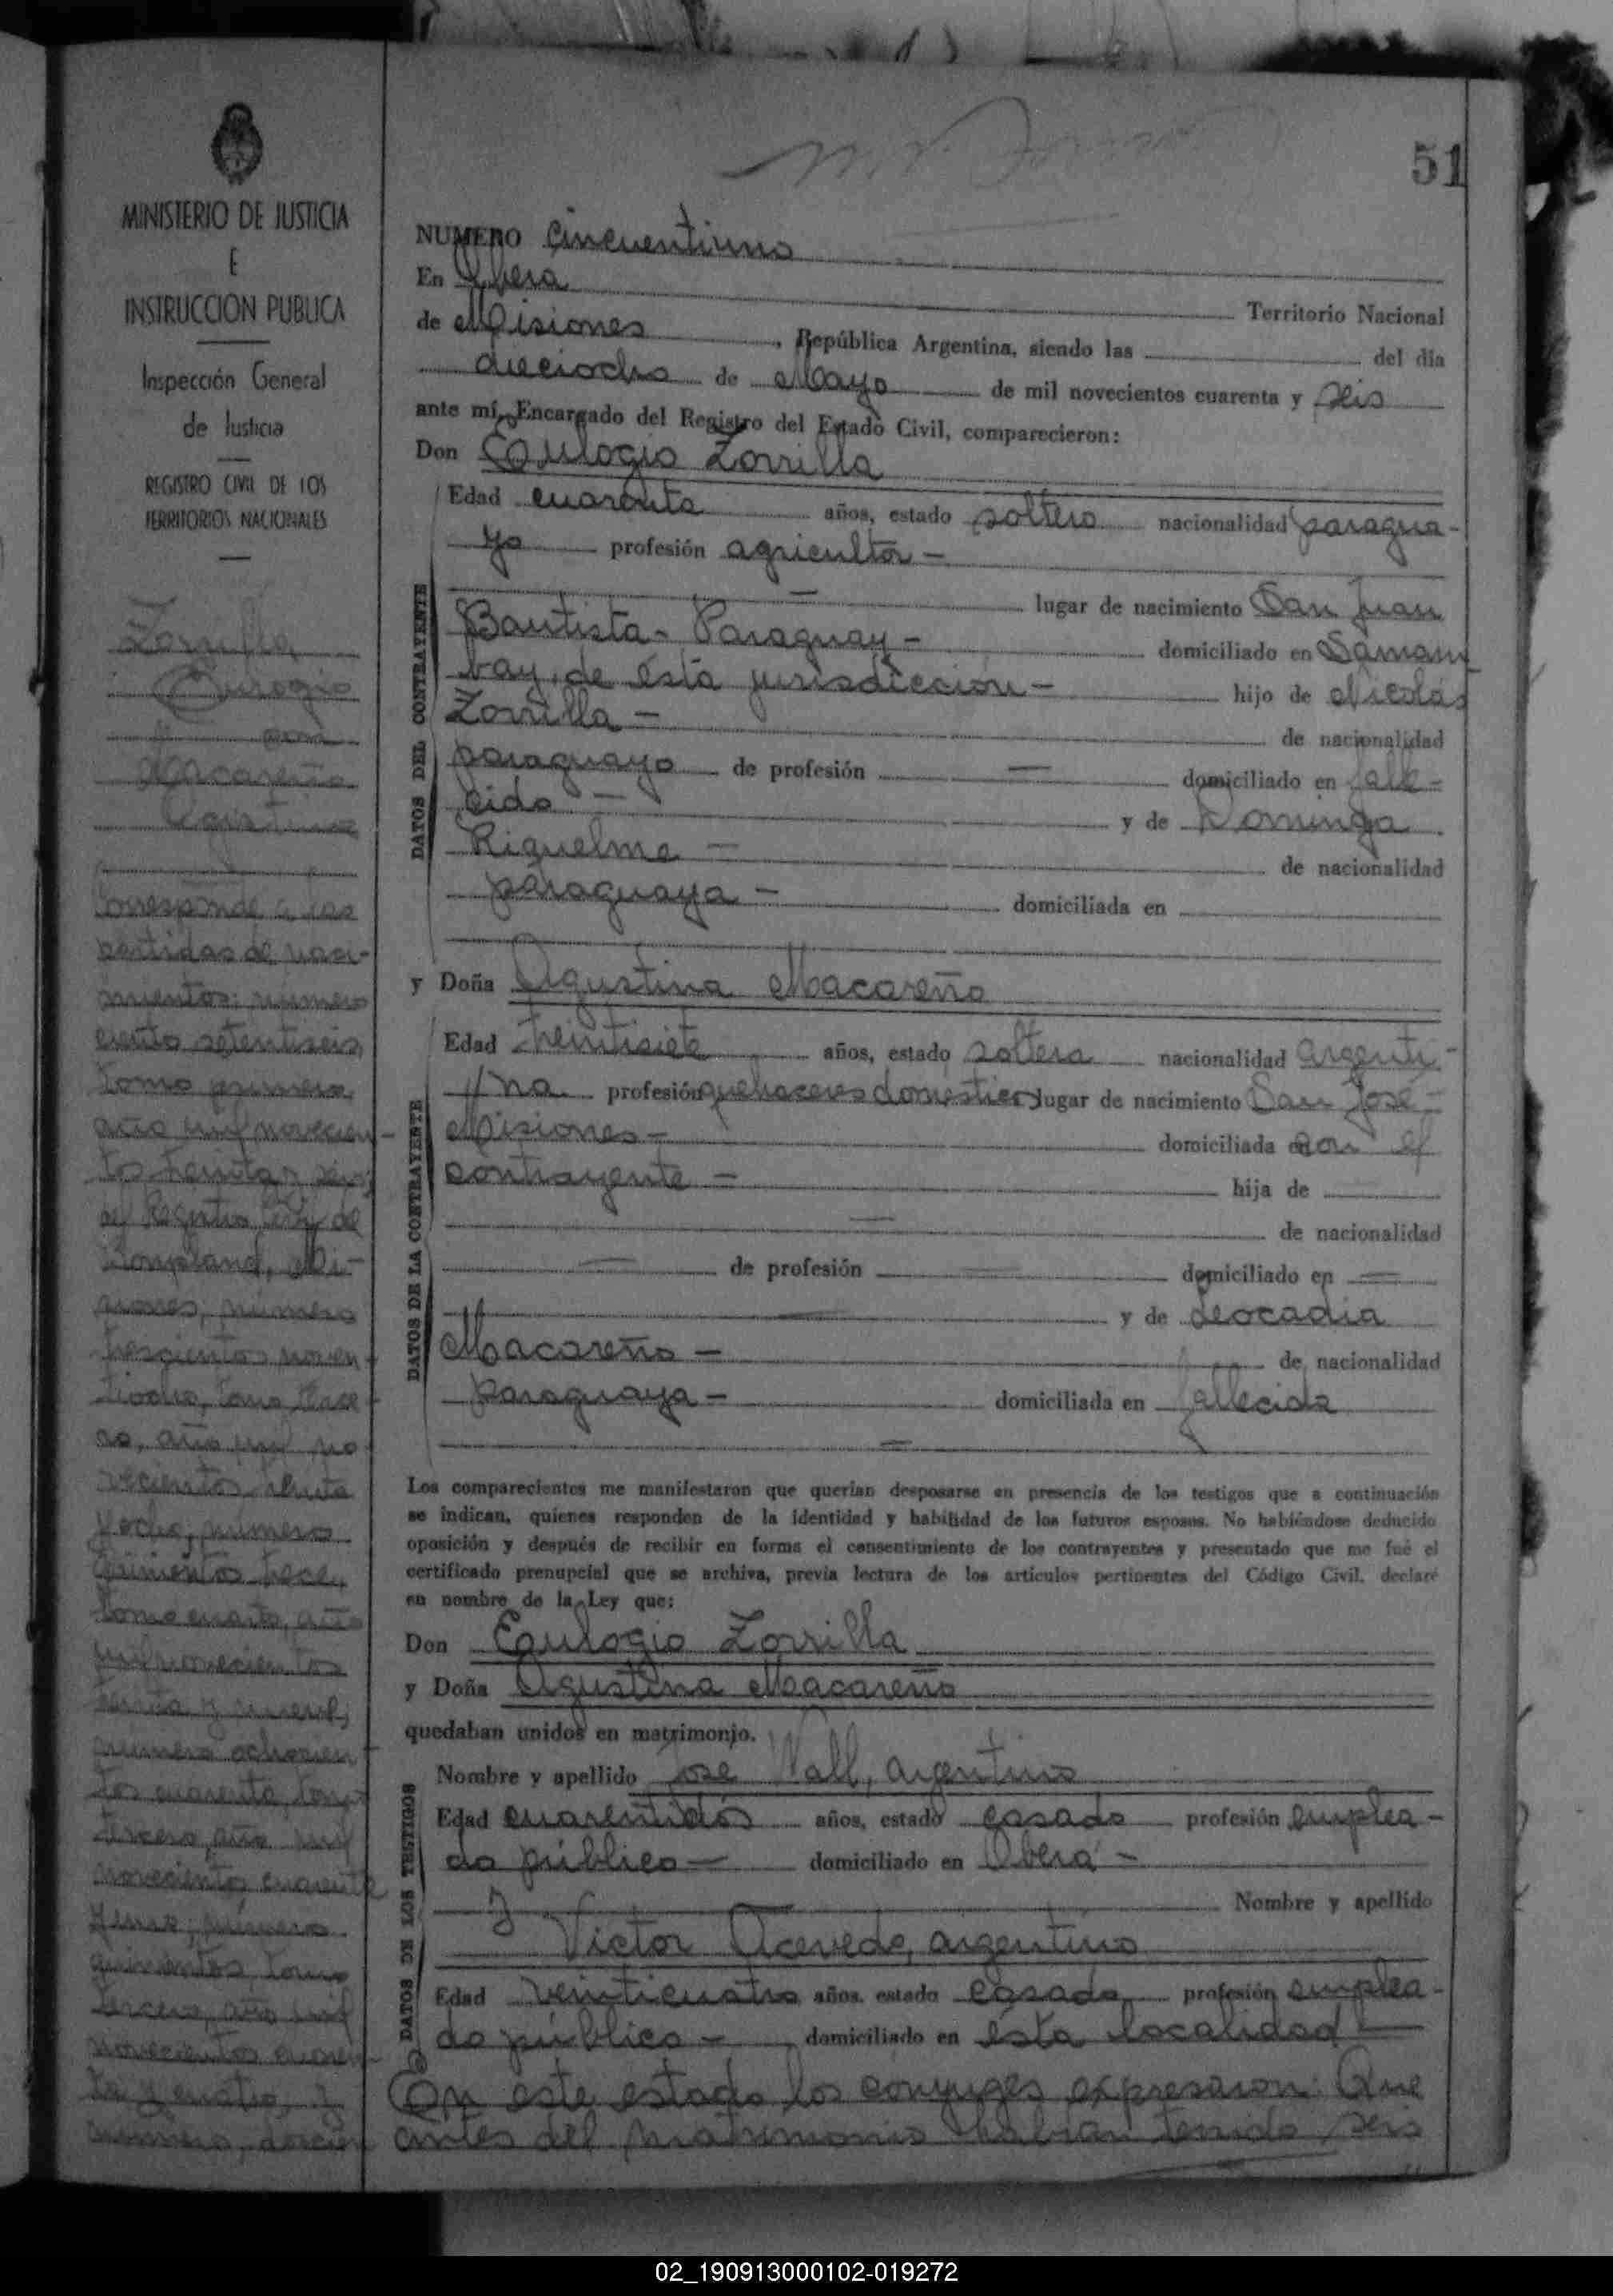 MINISTERIO DE JUSTICIA
E
INSTRUCCION PUBLICA
Inspección General
de Justicia
REGISTRO CIVIL DE LOS
TERRITORIOS NACIONALES
Zorrilla
Eulogio
con
Macareño
Agustina
Corresponde a las
partidas de naci-
mientos: número
ciento setentiseis,
tomo primero,
año mil novecien-
tos treinta y seis;
del Registro Civil de
Bonpland, Mi-
siones; número
trescientos noven-
tiocho, tomo terce-
ro, año mil no-
vecientos treinta
y ocho; número
quinientos trece,
tomo cuarto, año
mil novecientos
treinta y nueve;
número ochocien-
tos cuarenta, tomo
tercero, año mil
novecientos cuarenta
y uno; número
quinientos, tomo
tercero, año mil
novecientos cuaren-
ta y cuatro, y
número, doscien
51
NUMERO cincuentiuno
En Obera
Territorio Nacional
de Misiones, República Argentina, siendo las del día
dieciocho de Mayo de mil novecientos cuarenta y seis
ante mí, Encargado del Registro del Estado Civil, comparecieron:
Don Eulogio Zorrilla
DATOS DEL CONTRAYENTE
Edad cuarenta años, estado soltero nacionalidad paragua-
yo profesión agricultor -
lugar de nacimiento San Juan
Bautista - Paraguay - domiciliado en Samam
bay, de ésta jurisdicción - hijo de Nicolás
Zorrilla - de nacionalidad
paraguayo de profesión — domiciliado en falle-
cido - y de Dominga
Riquelme - de nacionalidad
paraguaya - domiciliada en
y Doña Agustina Macareño
DATOS DE LA CONTRAYENTE
Edad treintisiete años, estado soltera nacionalidad argenti-
na profesión quehaceres domésticos lugar de nacimiento San José -
Misiones - domiciliada en con el
contrayente - hija de
— de nacionalidad
— de profesión — domiciliado en —
— y de Leocadia
Macareño - de nacionalidad
paraguaya - domiciliada en fallecida
—
Los comparecientes me manifestaron que querían desposarse en presencia de los testigos que a continuación
se indican, quienes responden de la identidad y habilidad de los futuros esposos. No habiéndose deducido
oposición y después de recibir en forma el consentimiento de los contrayentes y presentado que me fué el
certificado prenupcial que se archiva, previa lectura de los artículos pertinentes del Código Civil, declaré
en nombre de la Ley que:
Don Eulogio Zorrilla
y Doña Agustina Macareño
quedaban unidos en matrimonio.
DATOS DE LOS TESTIGOS
Nombre y apellido José Wall, argentino
Edad cuarentidós años, estado casado profesión emplea-
do público - domiciliado en Oberá -
y Nombre y apellido
Victor Acevedo, argentino
Edad veinticuatro años, estado casado profesión emplea-
do público - domiciliado en ésta localidad -
En este estado los cónyuges expresaron: Que
antes del matrimonio habían tenido seis
02_190913000102-019272